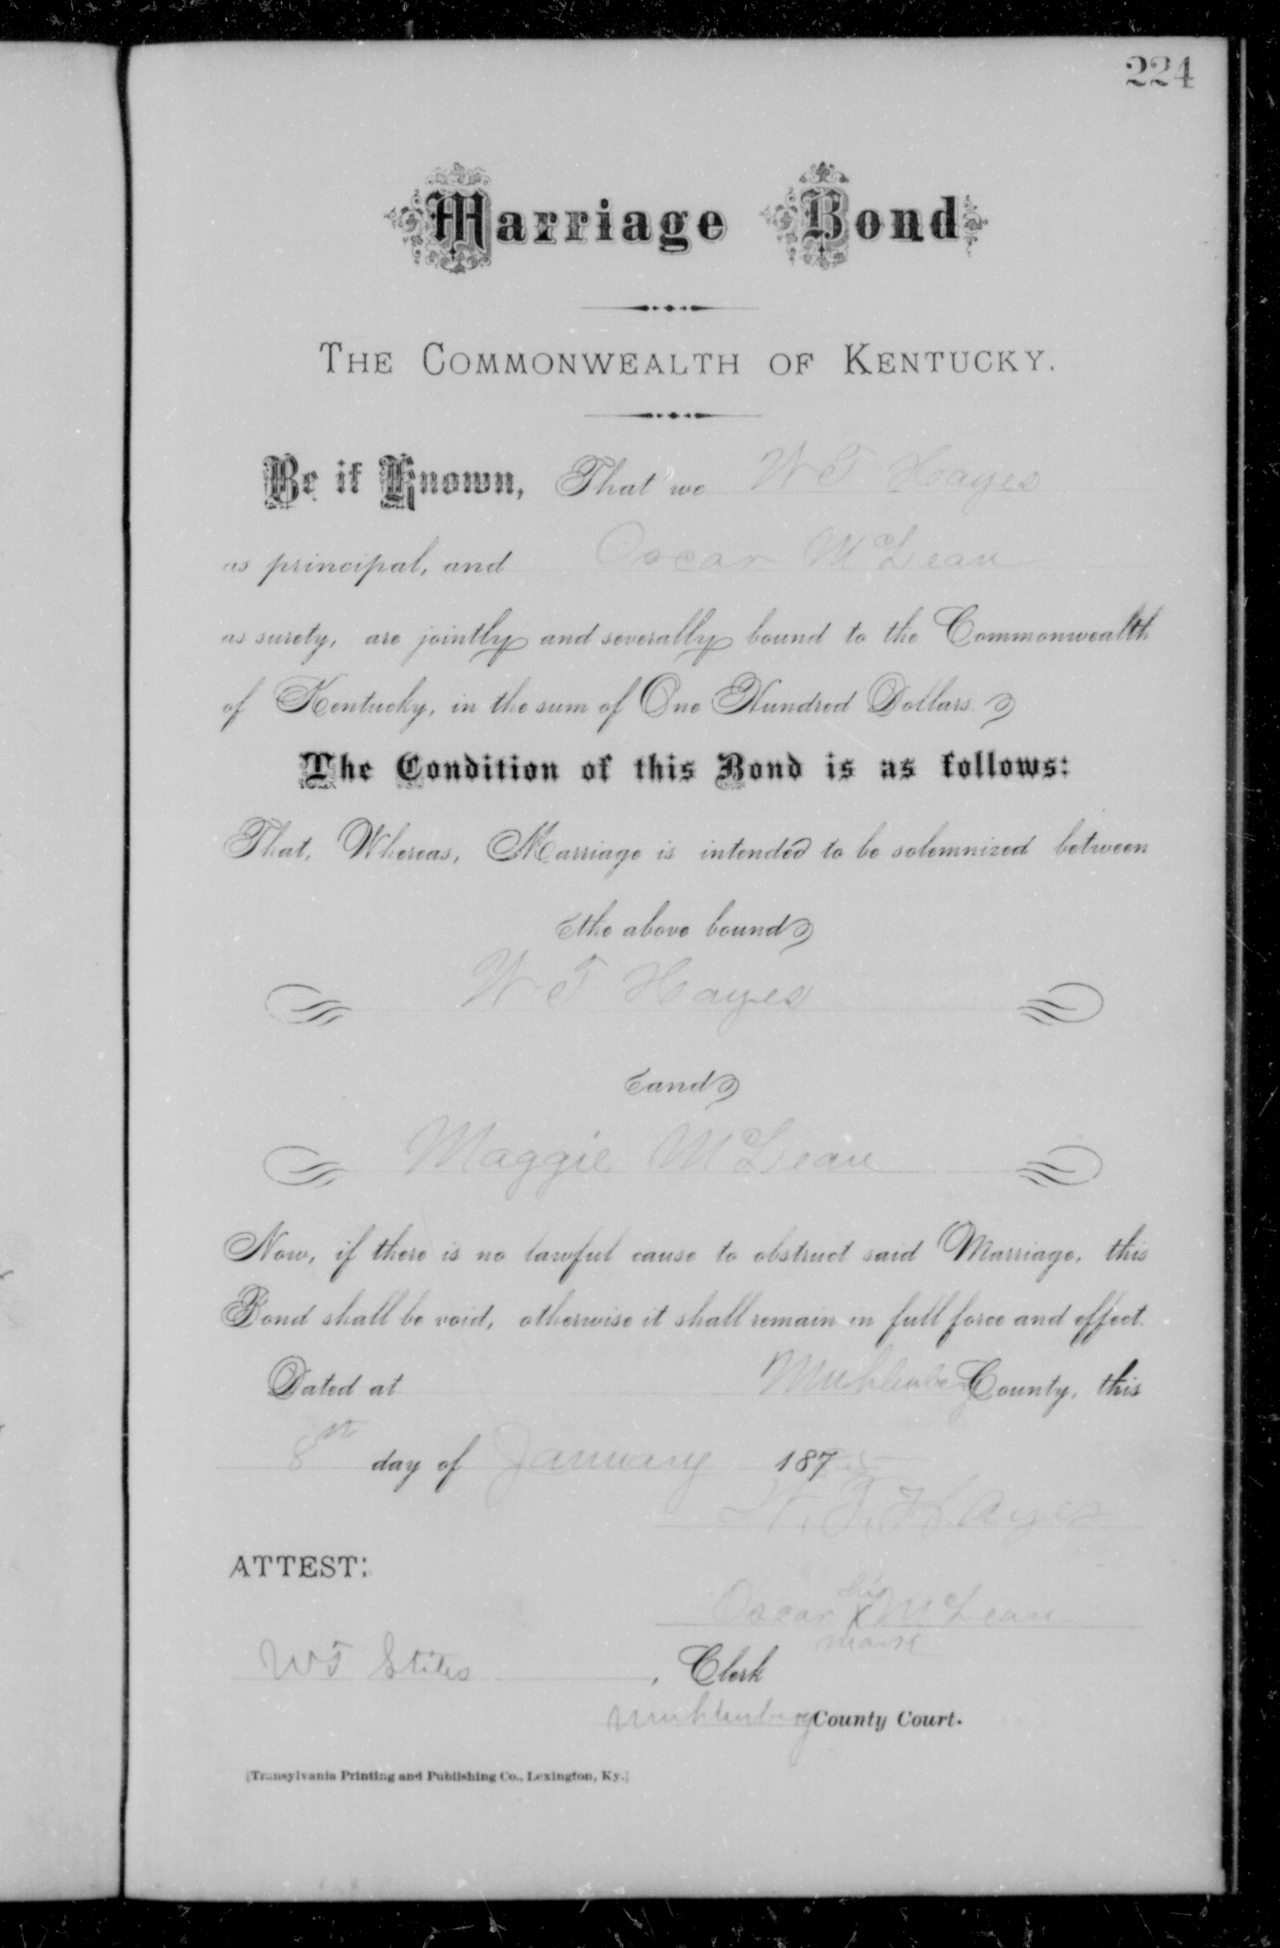 224
Marriage Bond
THE COMMONWEALTH OF KENTUCKY.
Be it Known, That we W T Hayes
as principal, and Oscar McLean
as surety, are jointly and severally bound to the Commonwealth
of Kentucky, in the sum of One Hundred Dollars.
The Condition of this Bond is as follows:
That, Whereas, Marriage is intended to be solemnized between
the above bound
W T Hayes
and
Maggie McLean
Now, if there is no lawful cause to obstruct said Marriage, this
Bond shall be void, otherwise it shall remain in full force and effect.
Dated at Muhlenberg County, this
8th day of January 187
W. T. Hayes
ATTEST:
his
Oscar X McLean
mark
W T Stiles, Clerk
Muhlenberg County Court.
[Transylvania Printing and Publishing Co., Lexington, Ky.]